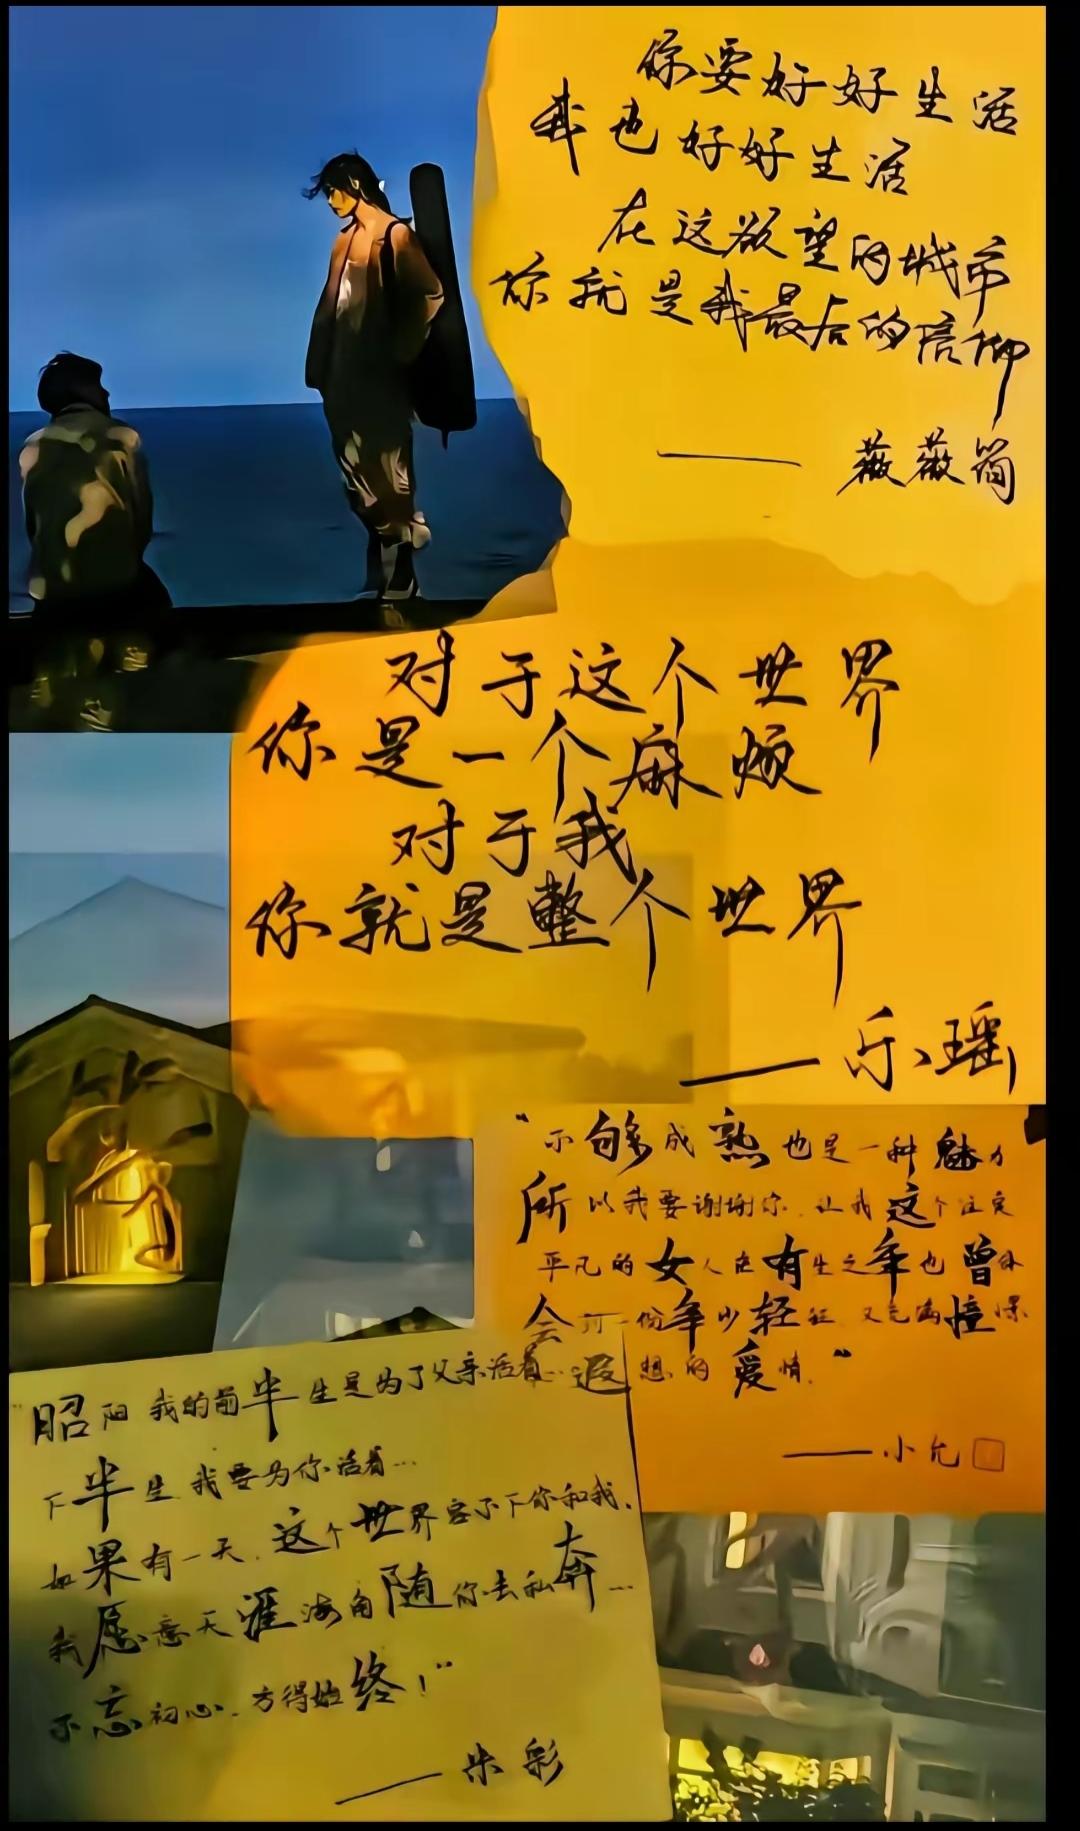 你要好好生活
我也好好生活
在这欲望的城市
你就是我最后的信仰
—— 薇薇简
对于这个世界
你是一个麻烦
对于我
你就是整个世界
—— 乐瑶
“不够成熟也是一种魅力
所以我要谢谢你、让我这个注定
平凡的女人在有生之年也曾体
会过一份年少轻狂、又充满憧憬
遐想的爱情。”
—— 小允
“昭阳 我的前半生是为了父亲活着…
下半生、我要为你活着…
如果有一天、这个世界容不下你和我、
我愿意天涯海角随你去私奔…
不忘初心、方得始终！”
—— 米彩